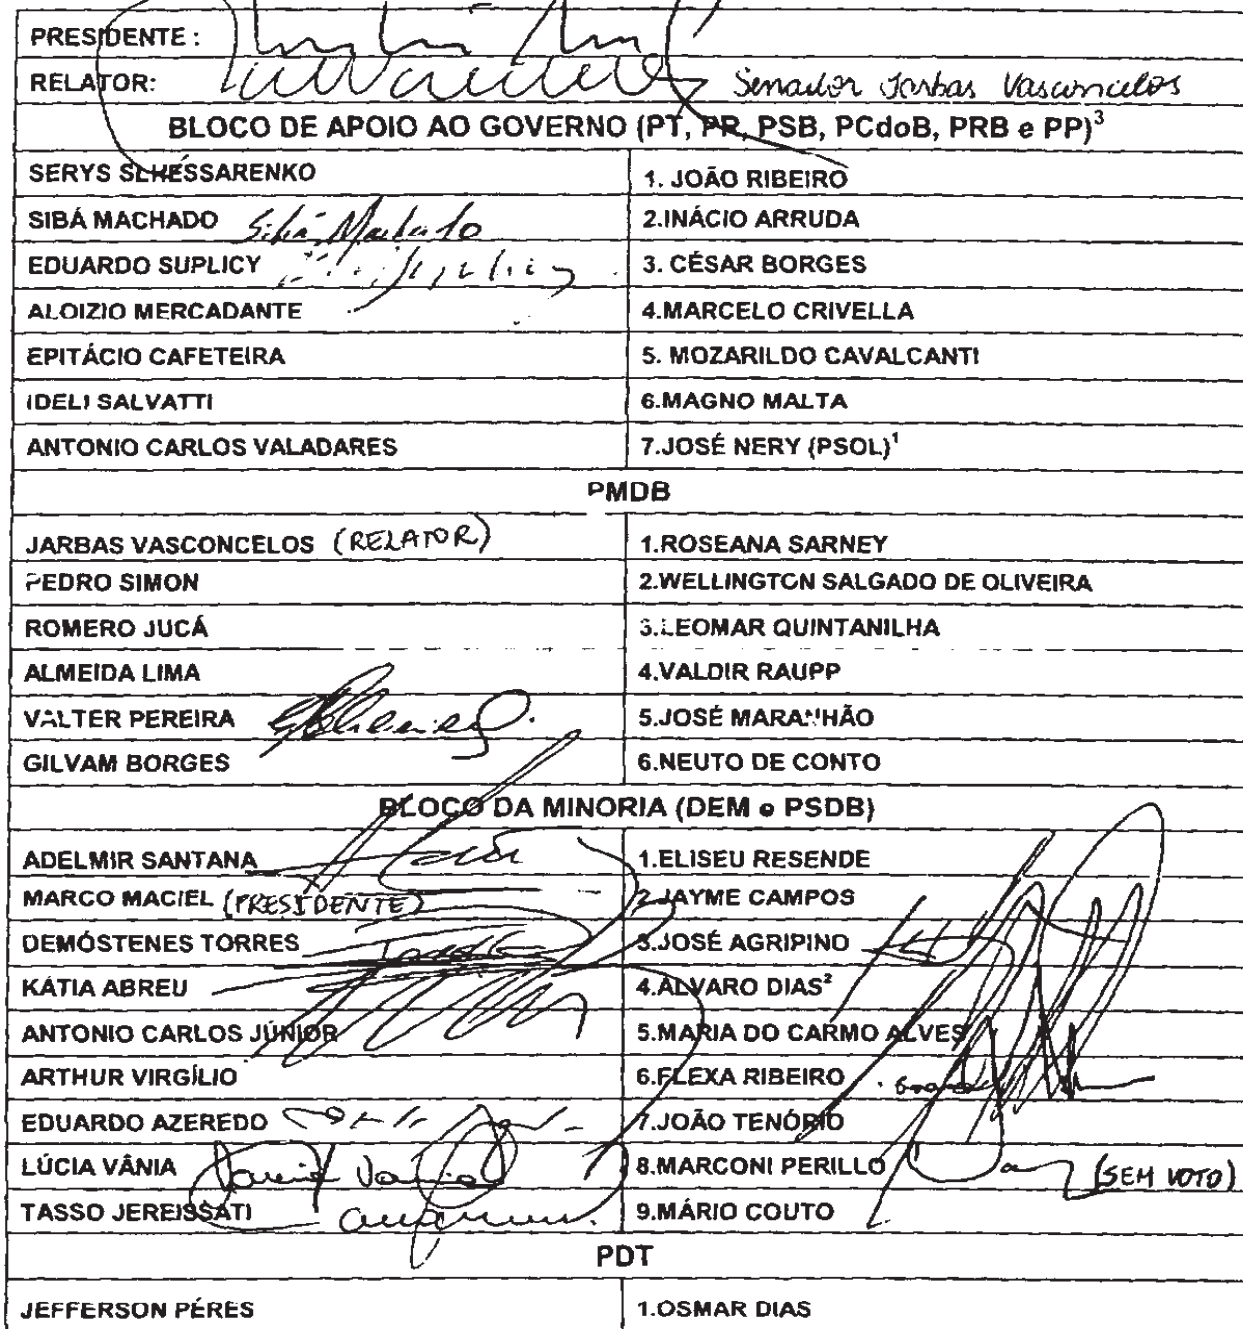 PRESIDENTE :
RELATOR: Senador Jarbas Vasconcelos
BLOCO DE APOIO AO GOVERNO (PT, PR, PSB, PCdoB, PRB e PP)³
SERYS SLHESSARENKO 1. JOÃO RIBEIRO
SIBÁ MACHADO Sibá Machado 2.INÁCIO ARRUDA
EDUARDO SUPLICY 3. CÉSAR BORGES
ALOIZIO MERCADANTE 4.MARCELO CRIVELLA
EPITÁCIO CAFETEIRA 5. MOZARILDO CAVALCANTI
IDELI SALVATTI 6.MAGNO MALTA
ANTONIO CARLOS VALADARES 7.JOSÉ NERY (PSOL)¹
PMDB
JARBAS VASCONCELOS (RELATOR) 1.ROSEANA SARNEY
PEDRO SIMON 2.WELLINGTON SALGADO DE OLIVEIRA
ROMERO JUCÁ 3.LEOMAR QUINTANILHA
ALMEIDA LIMA 4.VALDIR RAUPP
VALTER PEREIRA 5.JOSÉ MARANHÃO
GILVAM BORGES 6.NEUTO DE CONTO
BLOCO DA MINORIA (DEM e PSDB)
ADELMIR SANTANA 1.ELISEU RESENDE
MARCO MACIEL (PRESIDENTE) 2.JAYME CAMPOS
DEMÓSTENES TORRES 3.JOSÉ AGRIPINO
KÁTIA ABREU 4.ALVARO DIAS²
ANTONIO CARLOS JÚNIOR 5.MARIA DO CARMO ALVES
ARTHUR VIRGÍLIO 6.FLEXA RIBEIRO
EDUARDO AZEREDO 7.JOÃO TENÓRIO
LÚCIA VÂNIA 8.MARCONI PERILLO (SEM VOTO)
TASSO JEREISSATI 9.MÁRIO COUTO
PDT
JEFFERSON PÉRES 1.OSMAR DIAS